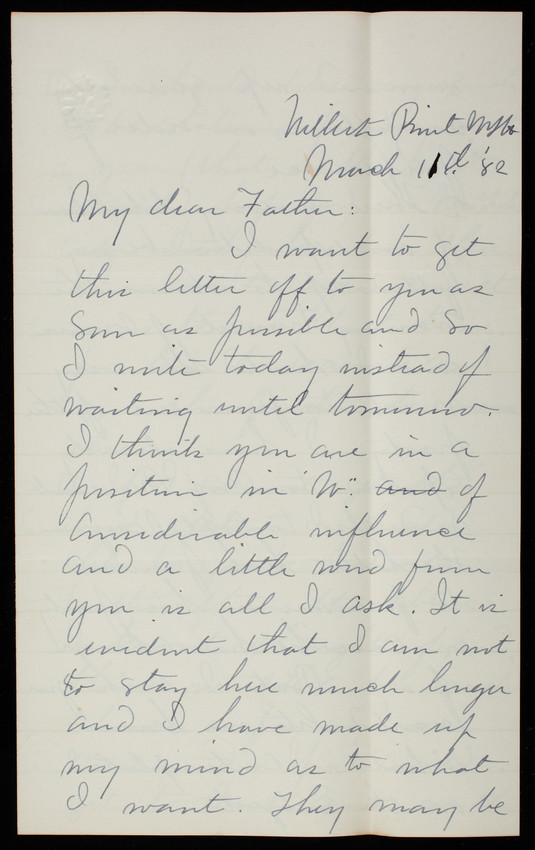 Willets Point N.Y.H.
March 11th '82
My dear Father:
I want to get
this letter off to you as
soon as possible and so
I write today instead of
waiting until tomorrow.
I think you are in a
position in "W". and of
considerable influence
and a little word from
you is all I ask. It is
evident that I am not
to stay here much longer
and I have made up
my mind as to what
I want. They may be